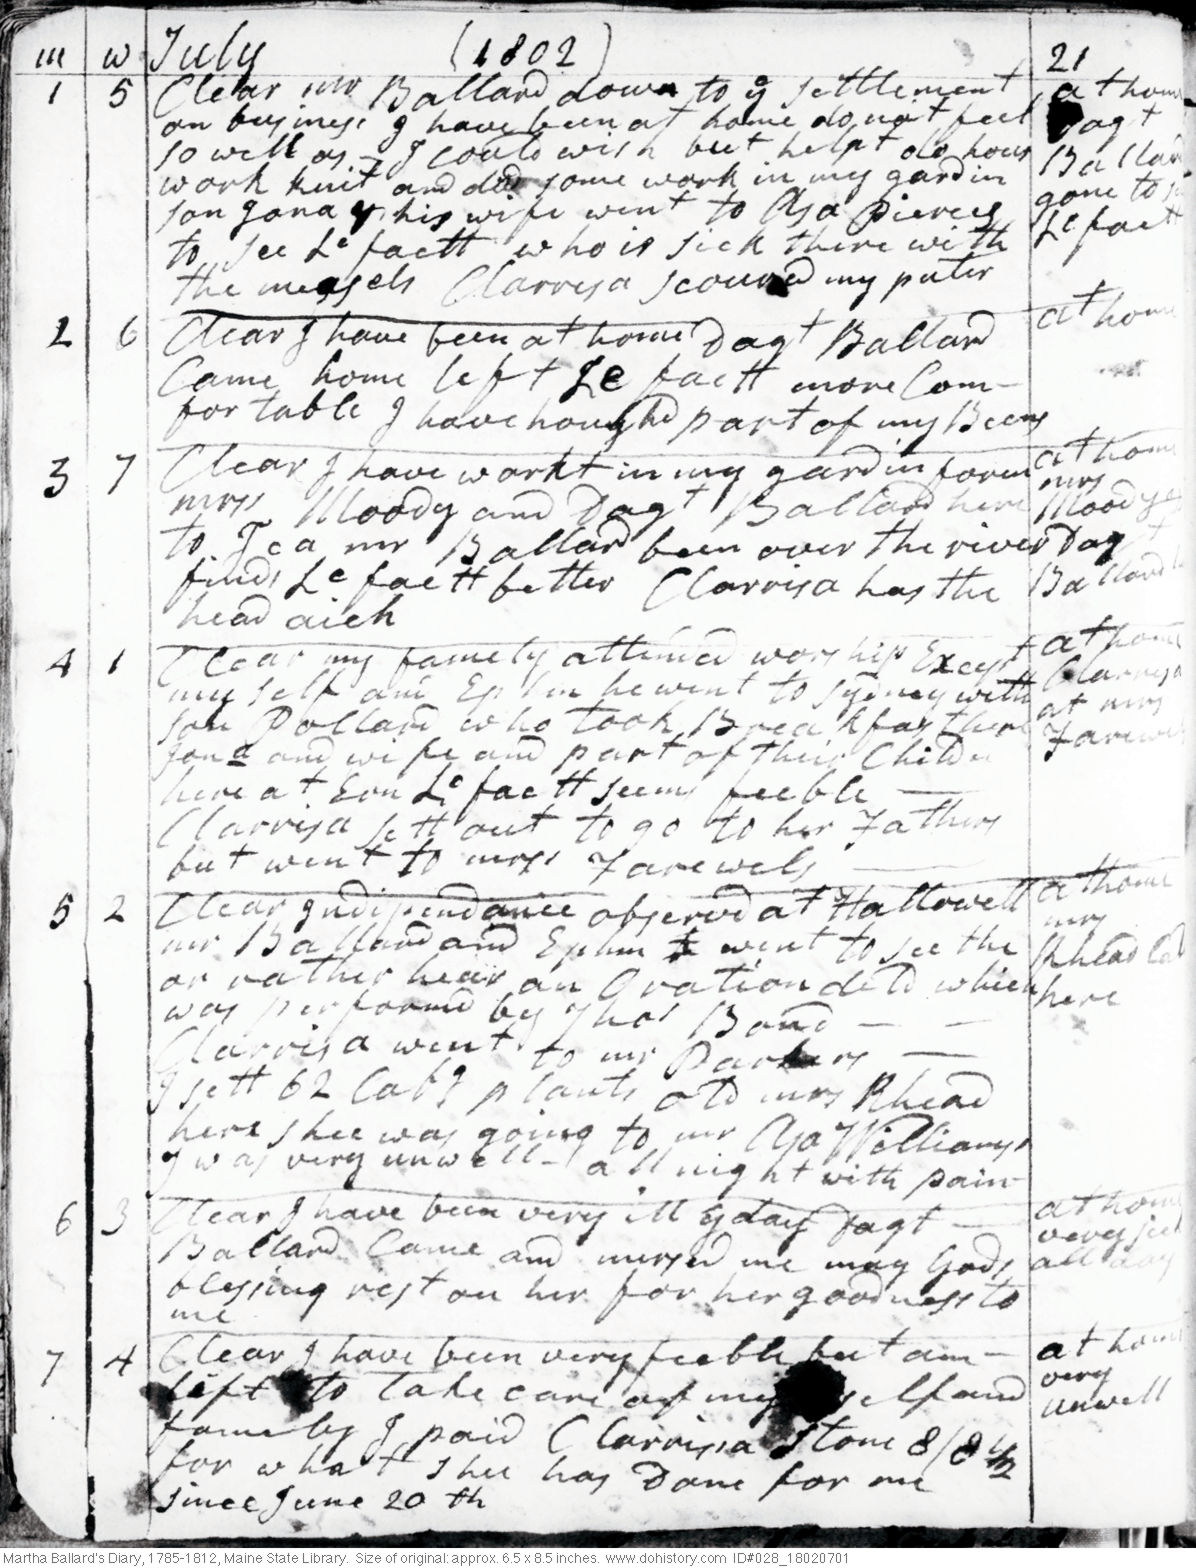 m w July (1802) 21
1 5 Clear mr Ballard down to ye settlement at home
on business I have been at home do not feel Dagt
so well as I could wish but helpt do hous Ballard
work knit and did some work in my gardin gone to
son Jona & his wife went to Asa Pierces Le factt
to see Le factt who is sick there with
the measels Clarrisa scoured my puter
2 6 Clear I have been at home Dagt Ballard at home
Came home left Le factt more Com-
fortable I have hough'd part of my Beens
3 7 Clear I have workt in my gardin foren at home
mrss Moody and Dagt Ballard here mrs Moody
to Tea mr Ballard been over the river Dagt
finds Le factt better Clarrisa has the Ballard
head aich
4 1 Clear my famely attended worship Except at home
my self and Ephm he went to Sydney with Clarrisa
son Pollard who took Breakfast here at mrs
Jona and wife and part of their Childn Farewels
here at Evn Le factt seems feeble —
Clarrisa sett out to go to her Fathers
but went to mrss Farewels —
5 2 Clear Indipendance observd at Hallowell at home
mr Ballard and Ephm went to see the mrs
or rather hear an Oration deld which Rhead
was performd by Thos Bond — — here
Clarrisa went to mr Parkers —
I sett 62 Cabg plants old mrs Rhead
here shee was going to mr Asa Williams,
I was very unwell - all night with pain
6 3 Clear I have been very ill ys day Dagt — at home
Ballard Came and nursed me may Gods very sick
blessing rest on her for her goodness to all day
me
7 4 Clear I have been very feeble but am — at home
left to take care of my self and very
famely I paid Clarrisa Stone 8/8 1/2 unwell
for what shee has Done for me
since June 20 th
Martha Ballard's Diary, 1785-1812, Maine State Library. Size of original: approx. 6.5 x 8.5 inches. www.dohistory.com ID#028_18020701